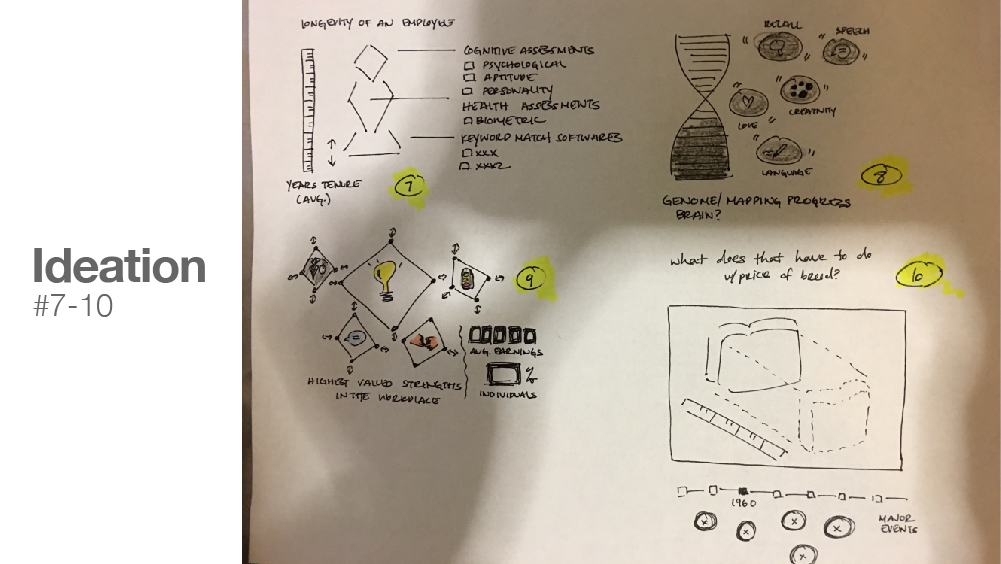 Ideation
#7-10
LONGEVITY OF AN EMPLOYEE
COGNITIVE ASSESSMENTS
PSYCHOLOGICAL
APTITUDE
PERSONALITY
HEALTH ASSESSMENTS
BIOMETRIC
KEYWORD MATCH/SOFTWARES
XXX
XXXZ
YEARS TENURE
(AVG.)
7
RECALL
SPEECH
CREATIVITY
LOVE
LANGUAGE
8
GENOME/MAPPING PROGRESS
BRAIN?
9
AVG EARNINGS
%
INDIVIDUALS
HIGHEST VALUED STRENGTHS
IN THE WORKPLACE
What does that have to do
w/price of bread?
10
1960
MAJOR
EVENTS